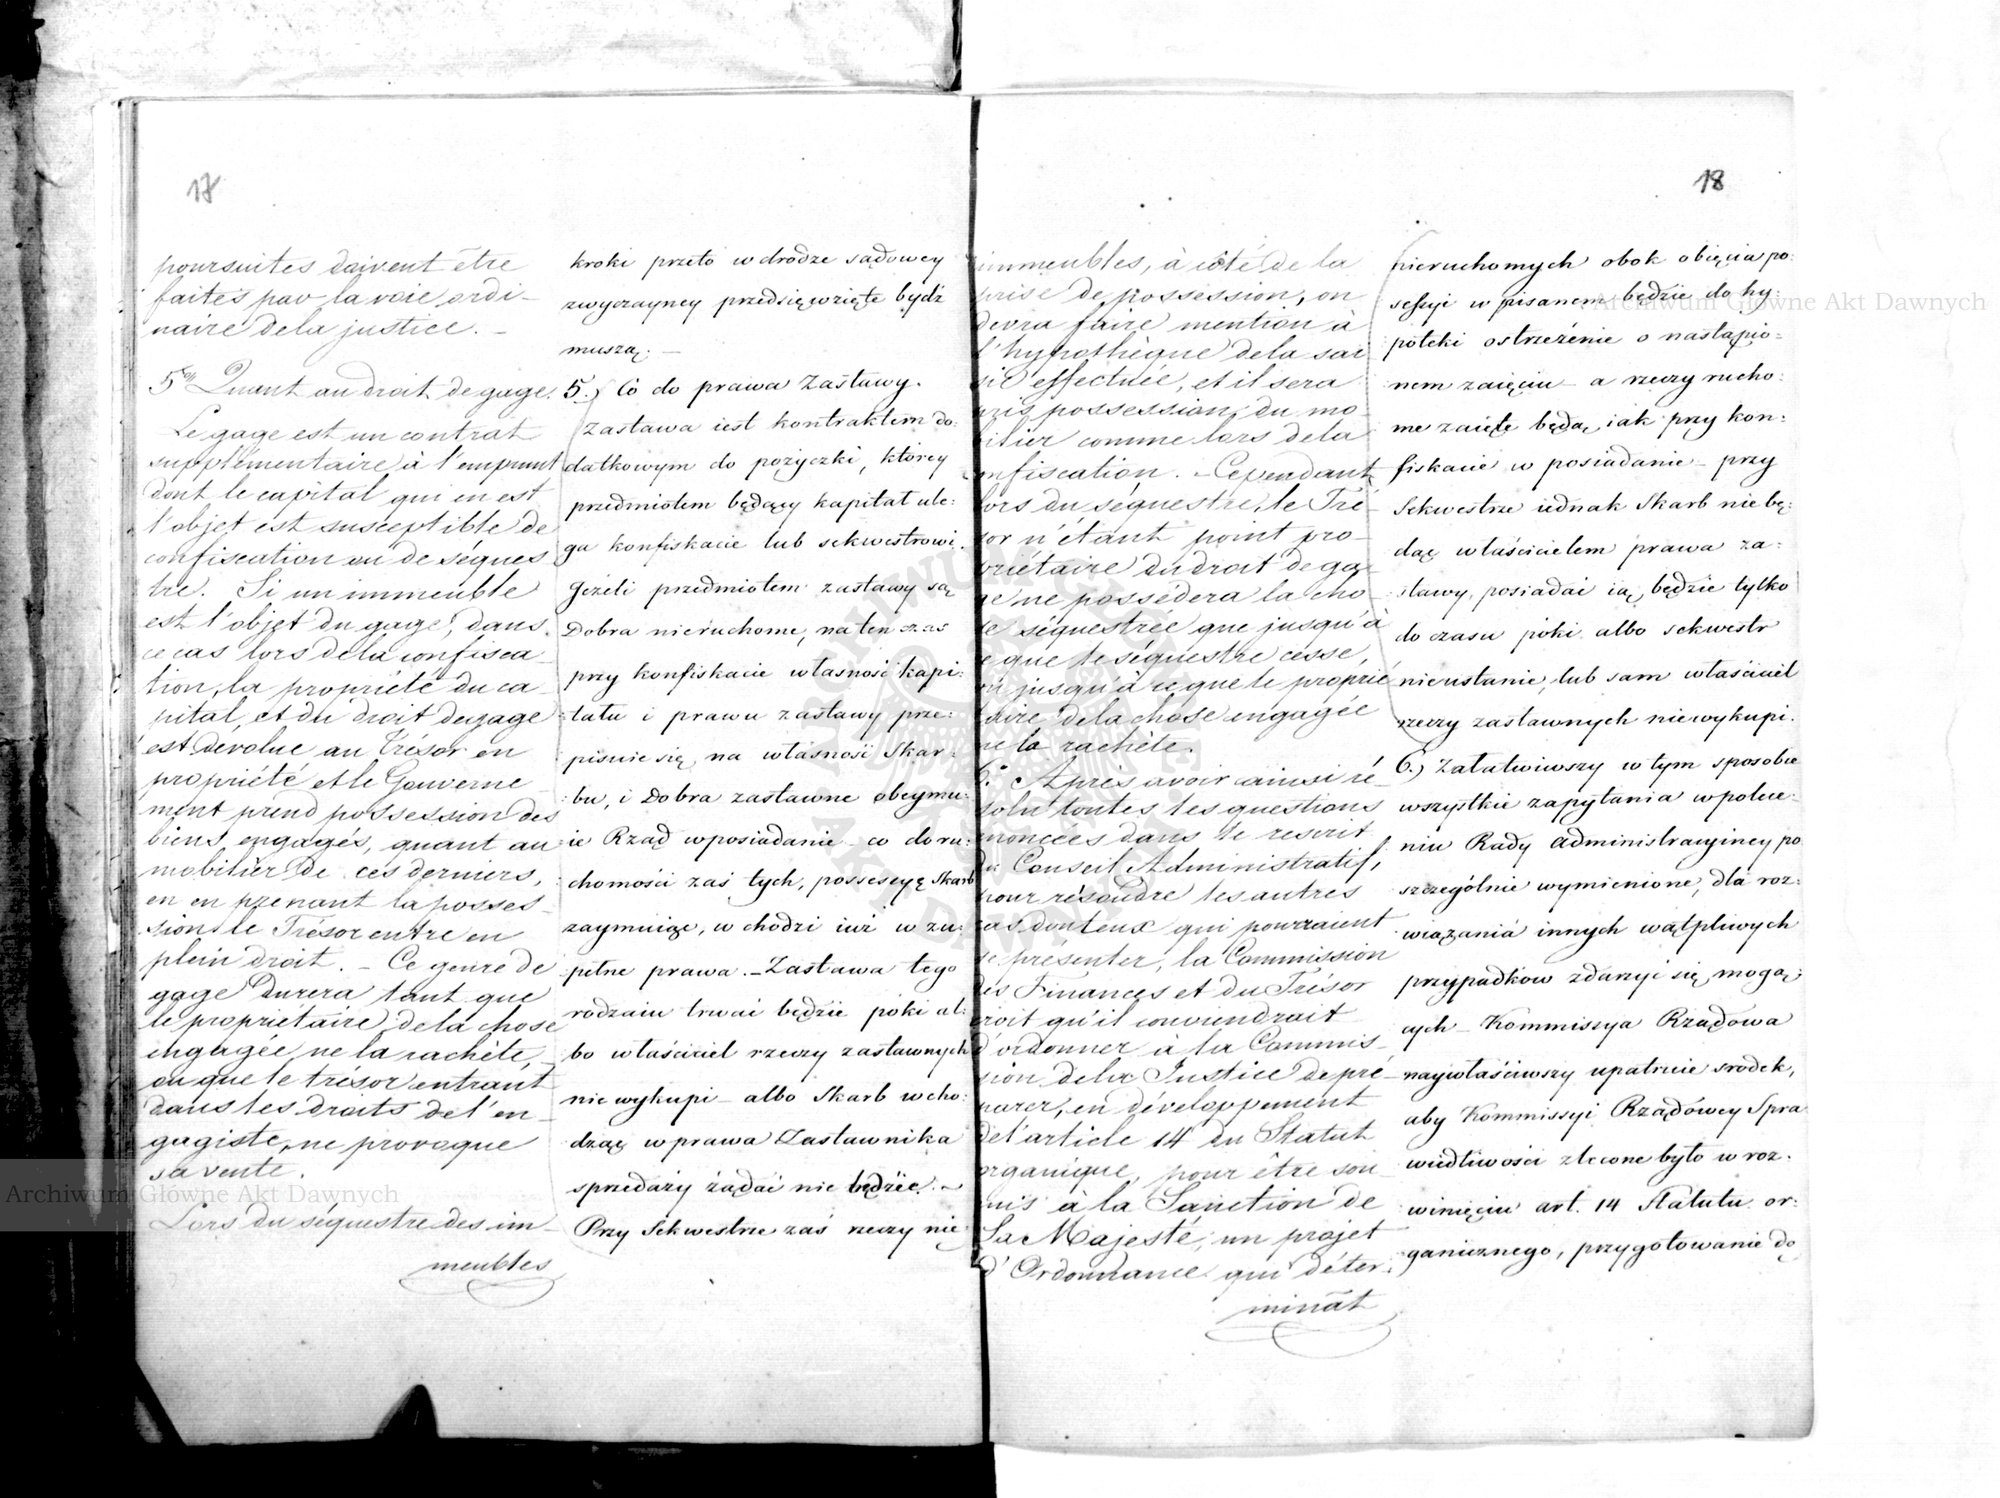 17
poursuites doivent être
faites par la voie ordi-
naire de la justice. -
5° Quant au droit de gage.
Le gage est un contrat
supplémentaire à l'emprunt
dont le capital qui en est
l'objet est susceptible de
confiscation ou de séques
tre. Si un immeuble
est l'objet du gage, dans
ce cas lors de la confisca
tion, la propriété du ca-
pital, et du droit de gage
est dévolue au Trésor en
propriété et le Gouverne-
ment prend possession des
biens engagés, quant au
mobilier de ces derniers,
en en prenant la posses-
sion le Trésor entre en
plein droit. - Ce genre de
gage durera tant que
le propriétaire de la chose
engagée ne la rachète,
ou que le trésor entrant
dans les droits de l'en-
gagiste, ne provoque
sa vente.
Lors du séquestre des im-
meubles
kroki przeto w drodze sądowey
zwyczayney przedsięwzięte bydź
muszą. -
5.) Co do prawa Zastawy.
Zastawa iest kontraktem do:
datkowym do pożyczki, którey
przedmiotem będący kapitał ule:
ga konfiskacie lub sekwestrowi.
Jeżeli przedmiotem zastawy są
Dobra nieruchome, na ten czas
przy konfiskacie własność kapi:
tału i prawa zastawy prze:
pisuie się na własność Skar:
bu, i Dobra zastawne obeymu:
ie Rząd w posiadanie - co do ru:
chomości zaś tych, possessyę Skarb
zaymuiąc, wchodzi iuż w zu:
pełne prawa. - Zastawa tego
rodzaiu trwać będzie póki al:
bo właściciel rzeczy zastawnych
nie wykupi - albo Skarb wcho:
dząc w prawa Zastawnika
sprzedaży żądać nie będzie. -
Przy Sekwestrze zaś rzeczy nie
18
immeubles, à côté de la
prise de possession, on
devra faire mention à
l'hypothèque de la sai
sie effectuée, et il sera
pris possession du mo-
bilier comme lors de la
confiscation. - Cependant
lors du séquestre, le Tré-
sor n'étant point pro-
priétaire du droit de ga-
ge ne possédera la cho-
se séquestrée que jusqu'à
ce que le séquestre cesse,
ou jusqu'à ce que le proprié
taire de la chose engagée
ne la rachète.
6° Après avoir ainsi ré-
solu toutes les questions
énoncées dans le rescrit
du Conseil Administratif,
pour résoudre les autres
cas douteux qui pourraient
se présenter, la Commission
des Finances et du Trésor
croit qu'il conviendrait
d'ordonner à la Commis-
sion de la Justice de pré-
parer, en développement
de l'article 14 du Statut
organique, pour être sou
mis à la Sanction de
Sa Majesté, un projet
d'Ordonnance qui déter-
minât
nieruchomych obok obięcia po:
sessyi wpisanem będzie do hy:
poteki ostrzeżenie o nastąpio:
nem zaięciu - a rzeczy rucho:
me zaięte będą, iak przy kon:
fiskacie w posiadanie - przy
Sekwestrze iednak Skarb nie bę:
dąc właścicielem prawa za:
stawy, posiadać ią będzie tylko
do czasu póki albo sekwestr
nieustanie, lub sam właściciel
rzeczy zastawnych niewykupi.
6.) Załatwiwszy w tym sposobie
wszystkie zapytania w polece:
niu Rady Administracyiney po
szczególnie wymienione, dla roz:
wiązania innych wątpliwych
przypadków zdarzyć się mogą:
cych - Kommissya Rządowa
naywłaściwszy upatruie srodek,
aby Kommissyi Rządowey Spra
wiedliwości zlecone było w roz:
winięciu art. 14 Statutu or:
ganicznego, przygotowanie do
Archiwum Główne Akt Dawnych
Archiwum Główne Akt Dawnych